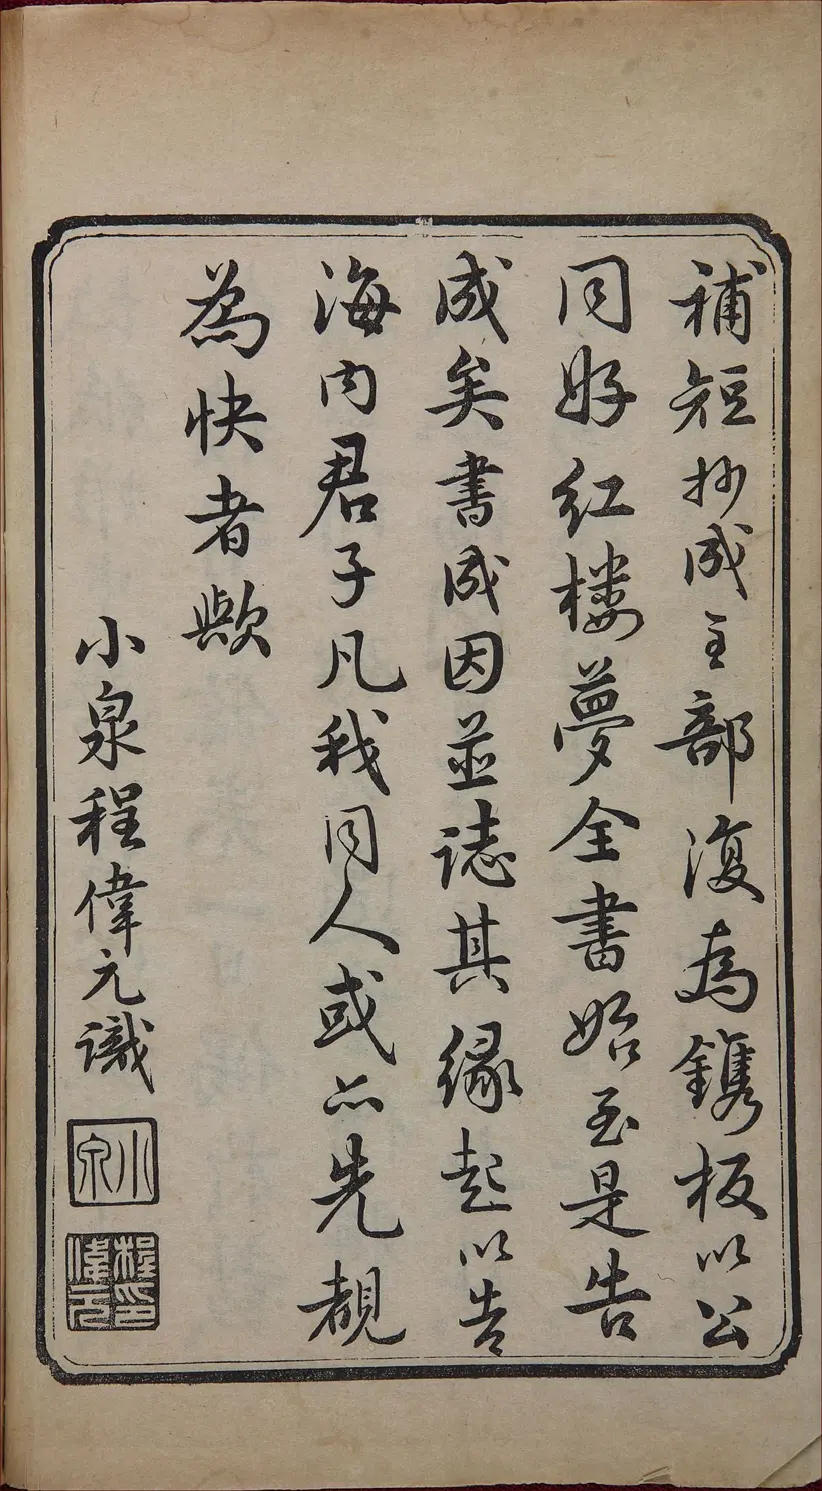 補短抄成全部復為鐫板以公
同好紅樓夢全書始至是告
成矣書成因並誌其緣起以告
海內君子凡我同人或亦先覩
為快者歟
小泉程偉元識
小泉
程偉元印